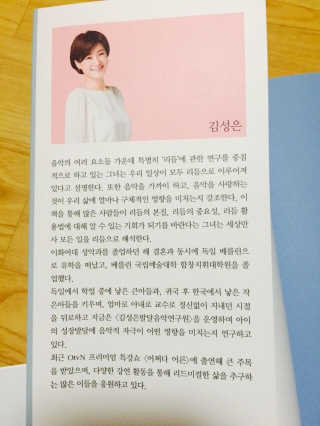 김성은
음악의 여러 요소들 가운데 특별히 '리듬'에 관한 연구를 중점
적으로 하고 있는 그녀는 우리 일상이 모두 리듬으로 이루어져
있다고 설명한다. 또한 음악을 가까이 하고, 음악을 사랑하는
것이 우리 삶에 얼마나 구체적인 영향을 미치는지 강조한다. 이
책을 통해 많은 사람들이 리듬의 본질, 리듬의 중요성, 리듬 활
용법에 대해 알 수 있는 기회가 되기를 바란다는 그녀는 세상만
사 모든 일을 리듬으로 해석한다.
이화여대 성악과를 졸업하던 해 결혼과 동시에 독일 베를린으
로 유학을 떠났고, 베를린 국립예술대학 합창지휘대학원을 졸
업했다.
독일에서 학업 중에 낳은 큰아들과, 귀국 후 한국에서 낳은 작
은아들을 키우며, 엄마로 아내로 교수로 정신없이 지내던 시절
을 뒤로하고 지금은 《김성은발달음악연구원》을 운영하며 아이
의 성장발달에 음악적 자극이 어떤 영향을 미치는지 연구하고
있다.
최근 OtvN 프리미엄 특강쇼 〈어쩌다 어른〉에 출연해 큰 주목
을 받았으며, 다양한 강연 활동을 통해 리드미컬한 삶을 추구하
는 많은 이들을 응원하고 있다.